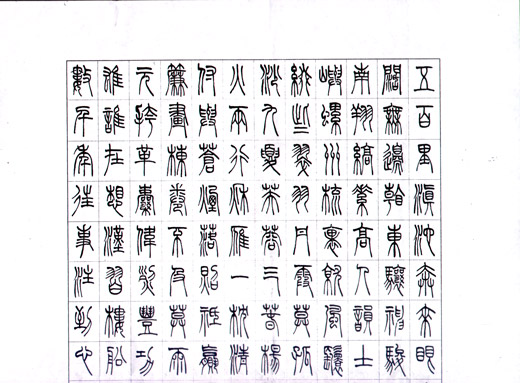 五百里滇池奔來眼
闊無邊看東驤神駿
南翔縞素高人韻士
嶼螺州梳裹就風鬟
綴些翠羽丹霞莫孤
沙九夏芙蓉三春楊
火兩行秋雁一枕清
付與蒼煙落照祗贏
簾畫棟卷不及莫雨
元跨革囊偉烈豐功
雄誰在想漢習樓船
數千年往事注到心